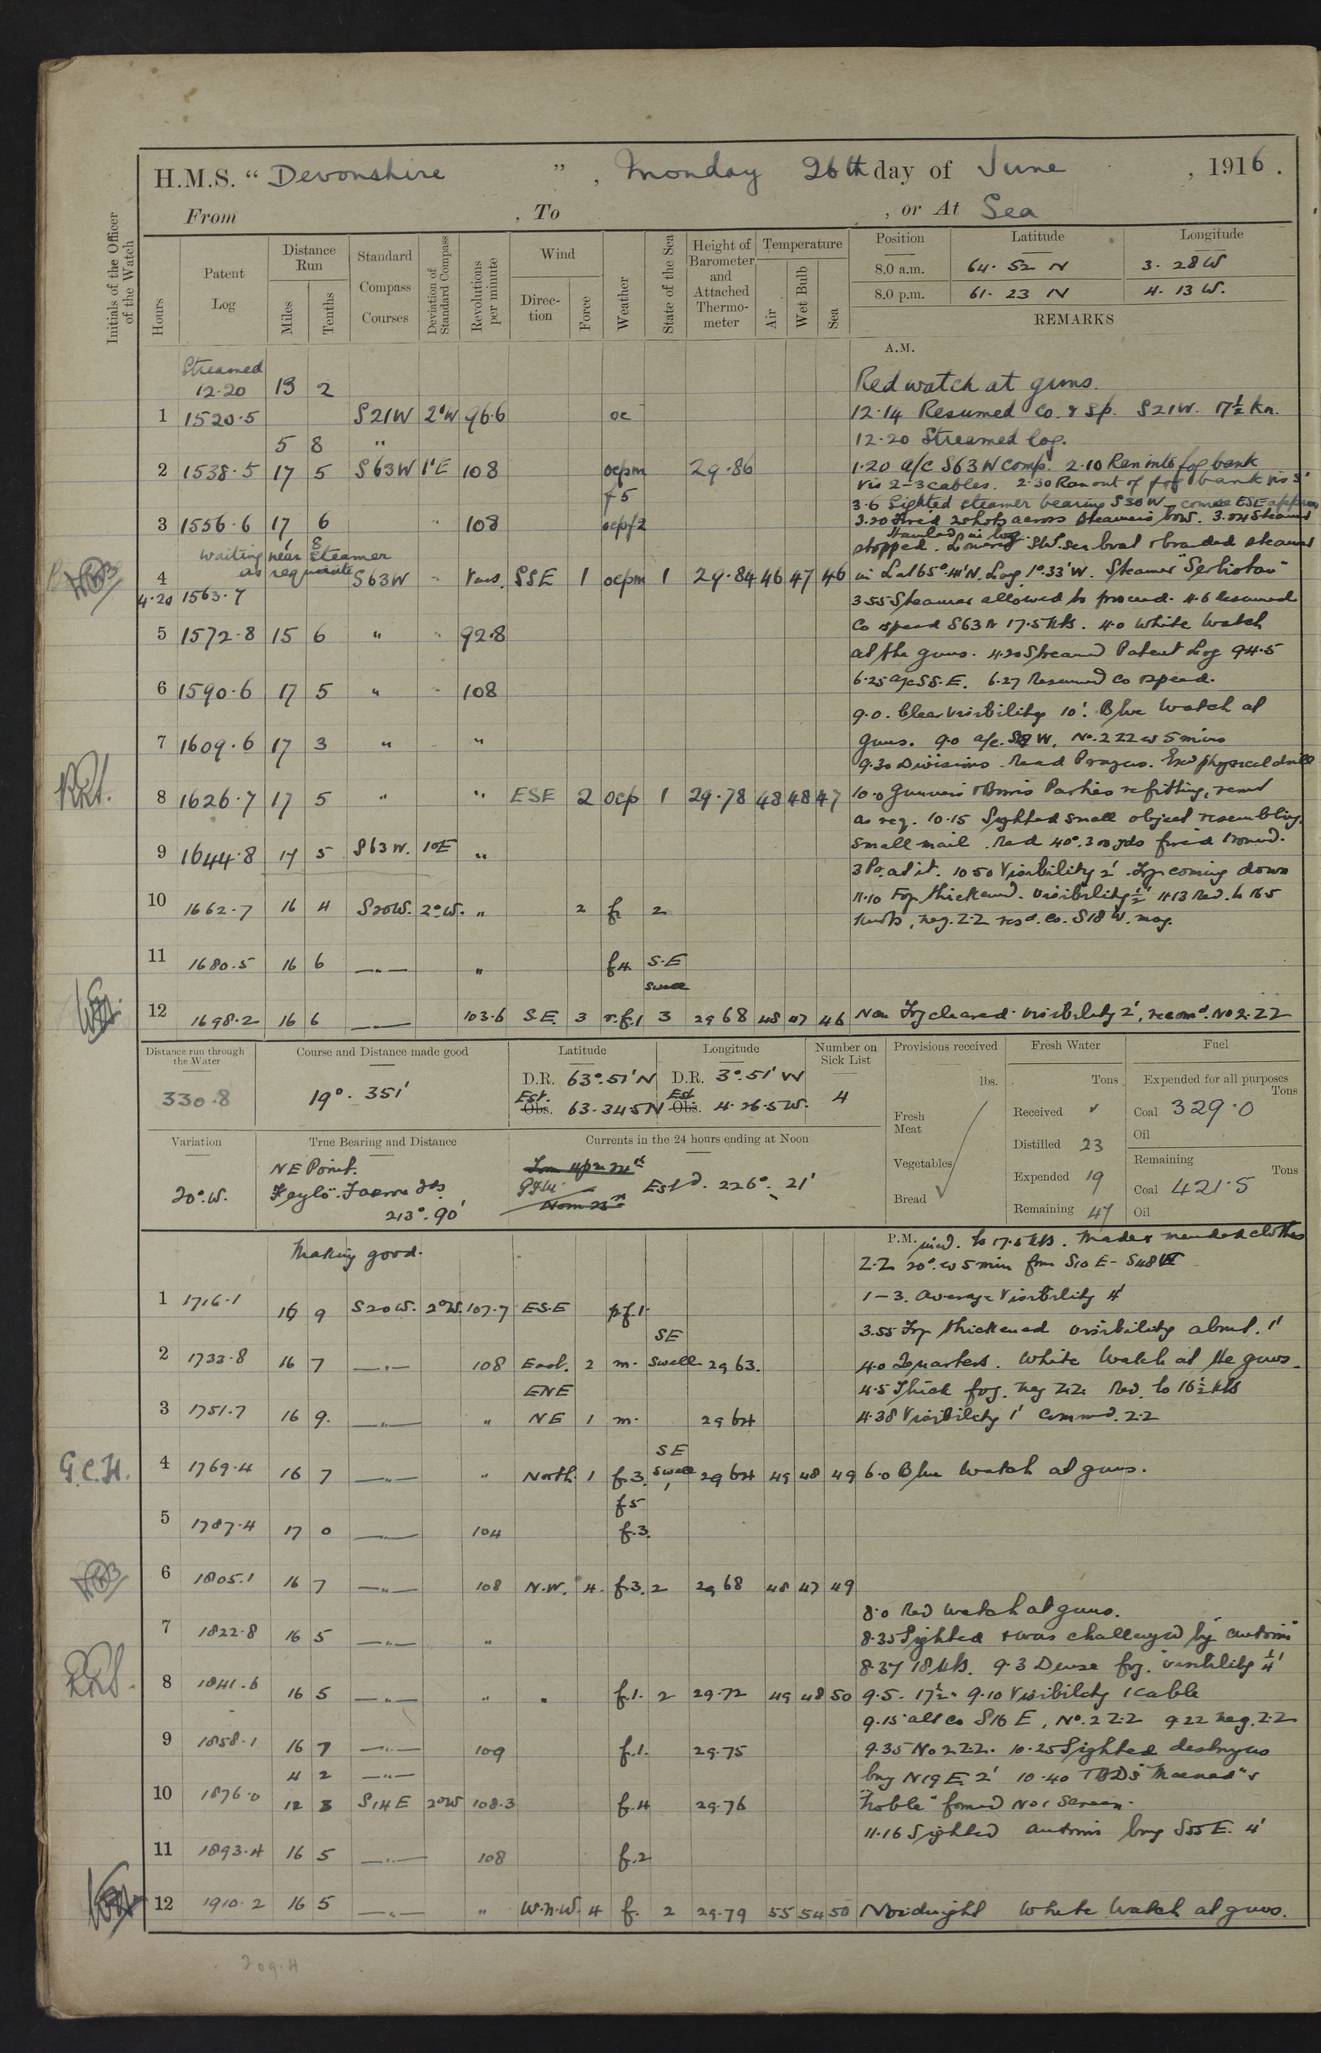 H.M.S. “ Devonshire ” , Monday 26th day of June , 1916 .
From , To , or At Sea
Initials of the Officer of the Watch
Hours
Patent Log
Distance Run
Miles
Tenths
Standard Compass Courses
Deviation of Standard Compass
Revolutions per minute
Wind
Direction
Force
Weather
State of the Sea
Height of Barometer and Attached Thermometer
Temperature
Air
Wet Bulb
Sea
Position Latitude Longitude
8.0 a.m. 64. 52 N 3. 28 W
8.0 p.m. 61. 23 N 4. 13 W.
REMARKS
A.M.
Streamed
12.20 13 2
Red watch at guns.
1 1520.5 S21W 2°W 96.6 oc
12.14 Resumed Co. & Sp. S21W. 17½ Kn.
5 8 "
12.20 Streamed log.
2 1538.5 17 5 S63W 1°E 108 ocpm 29.86
1.20 a/c S63W comp. 2.10 Ran into fog bank
f5
vis 2-3 cables. 2.30 Ran out of fog bank vis 3'
3.6 Sighted steamer bearing S30W course ESE
3 1556.6 17 6 " 108 ocpf2
3.20 Fired 2 shots across steamers bow. 3.24 Steamer
Waiting near steamer
stopped. boat & boarded steamer
as requisite
4 S63W " Vars. SSE 1 ocpm 1 29.84 46 47 46
in Lat 65°.41'N. Log 1°.33'W. Steamer
4.20 1563.7
3.55 Steamer allowed to proceed. 4.6 Resumed
5 1572.8 15 6 " " 92.8
Co & speed S63W 17.5 kts. 4.0 White Watch
at the guns. 4.20 Streamed Patent Log 94.5
6 1590.6 17 5 " " 108
6.25 a/c SSE. 6.27 Resumed Co & speed.
9.0. Clear visibility 10'. Blue Watch at
7 1609.6 17 3 " "
guns. 9.0 a/c. W. No. 2 ZZ ev 5 mins
9.30 Divisions. Read Prayers. Exd physical drill
8 1626.7 17 5 " " ESE 2 ocp 1 29.78 48 48 47
10.0 Parties refitting,
as req. 10.15 Sighted small object resembling
9 1644.8 17 5 S63W. 1°E "
small sail. Red 40°. 300 yds fired round.
3 Pr. at it. 10 50 Visibility 2'. Fog coming down
10 1662.7 16 4 S20W. 2°W. " 2 f. 2
11.10 Fog thickened. Visibility ½' 11.13 Red. to 16.5
knots, neg. Z.Z resd. co. S18W. mag.
11 1680.5 16 6 — " — " f4 S.E
swell
12 1698.2 16 6 — " — 103.6 S.E. 3 r.f.1 3 29 68 48 47 46
Noon Fog cleared. visibility 2', No 2. ZZ
Distance run through the Water
330.8
Course and Distance made good
19°. 351'
Latitude
D.R. 63°.51'N
Est. Obs. 63.34.5N
Longitude
D.R. 3°.51'W
Est. Obs. 4.26.5W.
Number on Sick List
4
Provisions received
lbs.
Fresh Meat
Vegetables
Bread
Fresh Water
Tons
Received
Distilled 23
Expended 19
Remaining 47
Fuel
Expended for all purposes
Tons
Coal 329.0
Oil
Remaining
Tons
Coal 421.5
Oil
Variation
20°.W.
True Bearing and Distance
NE Point.
213°. 90'
Currents in the 24 hours ending at Noon
Estd. 226°. 21'
P.M.
Making good.
incd. to 17.5 kts. mended clothes
Z.Z 20° ev 5 min from S10E - S48W
1 1716.1 16 9 S20W. 2°W. 107.7 ESE pf.1.
1-3. Average Visibility 4'
SE
3.55 Fog thickened visibility about. 1'
2 1733.8 16 7 — " — 108 East. 2 m. Swell 29 63.
4.0 Quarters. White Watch at the guns.
ENE
4.5 Thick fog. neg ZZ. Red. to 16½ kts
3 1751.7 16 9. — " — " NE 1 m. 29 64
4.38 Visibility 1' Z.Z
SE
G.C.H. 4 1769.4 16 7 — " — " North. 1 f.3. swell 29 64 49 48 49
6.0 Blue Watch at guns.
f5
5 1787.4 17 0 — " — 104 f.3.
6 1805.1 16 7 — " — 108 N.W. 4. f.3. 2 29 68 48 47 49
8.0 Red Watch at guns.
7 1822.8 16 5 — " — "
8.35 Sighted & was challenged by "Antrim"
8.37 18 kts. 9.3 Dense fog. visibility ¼'
8 1841.6 16 5 — " — " f.1. 2 29.72 49 48 50
9.5. 17½. 9.10 Visibility 1 cable
9.15 alt Co S16E, No. 2 ZZ 9.22 neg. Z.Z
9 1858.1 16 7 — " — 109 f.1. 29.75
9.35 No 2 Z.Z. 10.25 Sighted destroyers
4 2 — " —
brg N19E 2' 10.40 TBDS "Maenad" &
10 1876.0 12 3 S14E 2°W 108.3 f.4 29.76
"Noble" formed No 1 Screen.
11.16 Sighted Antrim brg S55E. 4'
11 1893.4 16 5 — " — 108 f.2
12 1910.2 16 5 — " — " W.N.W. 4 f. 2 29.79 55 54 50
Midnight White Watch at guns.
209.4